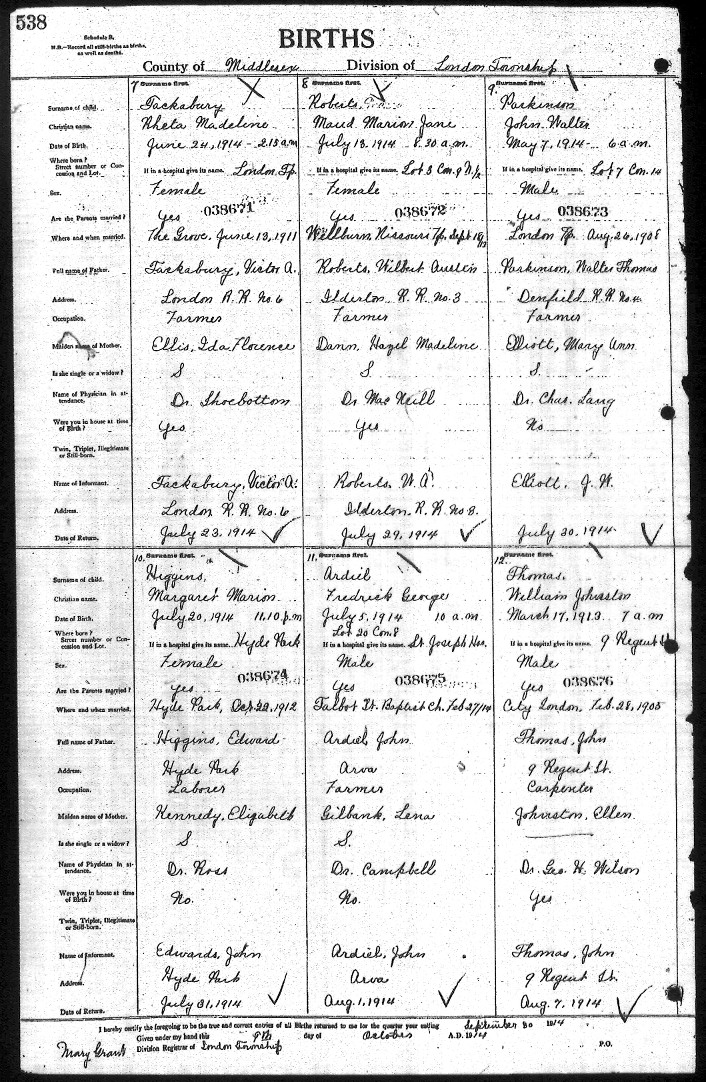 538
Schedule B.
N.B.—Record all still-births as births, as well as deaths.
BIRTHS
County of Middlesex Division of London Township
7 Surname first. 8 Surname first. 9. Surname first.
Surname of child. Tackabury Roberts Parkinson
Christian name. Rheta Madeline Maud Marion Jane John Walter
Date of Birth June 24, 1914 - 2.15 a.m July 13, 1914 8.30 a.m. May 7, 1914 - 6 a.m.
Where born?
Street number or Concession and Lot. If in a hospital give its name. London Tp. If in a hospital give its name. Lot 3 Con. 9 N.½ If in a hospital give its name. Lot 7 Con. 14
Sex. Female Female Male
038671 038672 038673
Are the Parents married? Yes Yes Yes
Where and when married. The Grove, June 13, 1911 Wellburn, Nissouri Tp. Sept 18/ London Tp. Aug. 26, 1908
Full name of Father. Tackabury, Victor A. Roberts, Wilbert Austen Parkinson, Walter Thomas
Address. London R.R. No. 6 Ilderton R.R. No. 3 Denfield R.R. No. 4
Occupation. Farmer Farmer Farmer
Maiden name of Mother. Ellis, Ida Florence Dann, Hazel Madeline Elliott, Mary Ann
Is she single or a widow? S S S
Name of Physician in attendance. Dr. Shoebottom Dr Mac Neill Dr. Chas. Lang
Were you in house at time of Birth? Yes Yes No
Twin, Triplet, Illegitimate or Still-born.
Name of Informant. Tackabury, Victor A. Roberts, W. A. Elliott, J. W.
Address. London R.R. No. 6 Ilderton, R.R. No 3.
Date of Return. July 23, 1914 July 29, 1914 July 30, 1914
10. Surname first. 11. Surname first. 12. Surname first.
Surname of child. Higgins, Ardiel Thomas.
Christian name. Margaret Marion Fredrick George William Johnston
Date of Birth. July 20, 1914 11.10 p.m July 5, 1914 10 a.m. March 17, 1913 7 a.m
Where born? Lot 20 Con. 8
Street number or Concession and Lot. If in a hospital give its name. Hyde Park If in a hospital give its name. St. Joseph Hos. If in a hospital give its name. 9 Regent St
Sex. Female Male Male
038674 038675 038676
Are the Parents married? Yes Yes Yes
Where and when married. Hyde Park, Oct. 22, 1912 Talbot St. Baptist Ch. Feb 27/14 City London, Feb. 28, 1905
Full name of Father. Higgins, Edward Ardiel, John Thomas, John
Address. Hyde Park Arva 9 Regent St.
Occupation. Laborer Farmer Carpenter
Maiden name of Mother. Kennedy, Elizabeth Gilbank, Lena Johnston, Ellen
Is she single or a widow? S S.
Name of Physician in attendance. Dr. Ross Dr. Campbell Dr. Geo. H. Wilson
Were you in house at time of Birth? No. No. Yes
Twin, Triplet, Illegitimate or Still-born.
Name of Informant. Edwards, John Ardiel, John Thomas, John
Address. Hyde Park Arva 9 Regent St.
Date of Return. July 31, 1914 Aug. 1, 1914 Aug. 7, 1914
I hereby certify the foregoing to be the true and correct entries of all Births returned to me for the quarter year ending September 30 1914
Given under my hand this 9th day of October A.D. 1914
Mary Grant Division Registrar of London Township P.O.